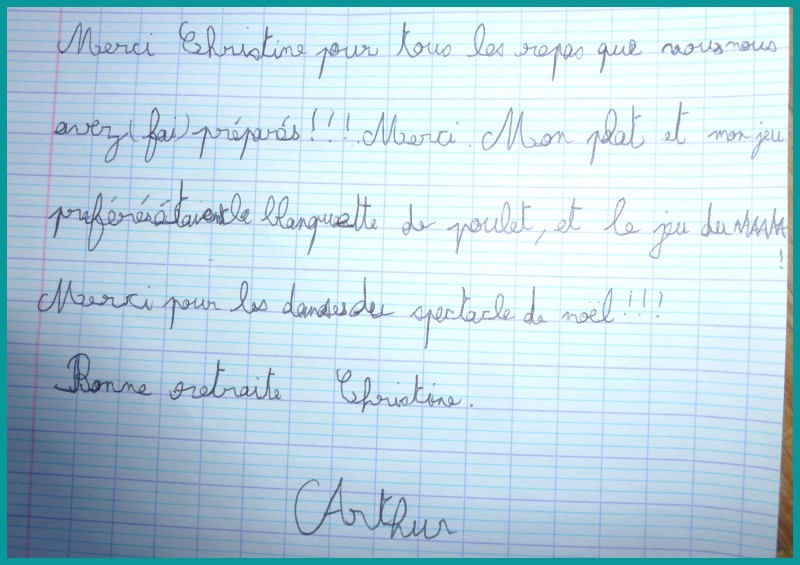 Merci Christine pour tous les repas que vous nous
avez (fai) préparés!!! Merci. Mon plat et mon jeu
préférés étaient le blanquette de poulet, et le jeu du MAAAA
!
Merci pour les danses du spectacle de noël!!!
Bonne retraite Christine.
Arthur